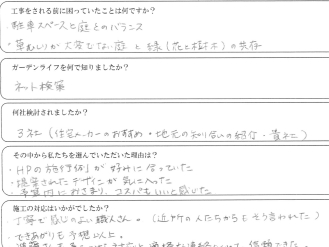 工事をされる前に困っていたことは何ですか？
・駐車スペースと庭とのバランス
・草むしりが大変じゃない庭と緑（花と樹木）の共存
ガーデンライフを何で知りましたか？
ネット検索
何社検討されましたか？
3社（住宅メーカーのおすすめ・地元の知り合いの紹介・貴社）
その中から私たちを選んでいただいた理由は？
・HPの施行例が好みに合っていた
・提案されたデザインが気に入った
・予算内におさまり、コスパもいいと感じた
施工の対応はいかがでしたか？
・丁寧で感じのよい職人さん。（近所の人たちからもそう言われた）
・できあがりも予想以上。